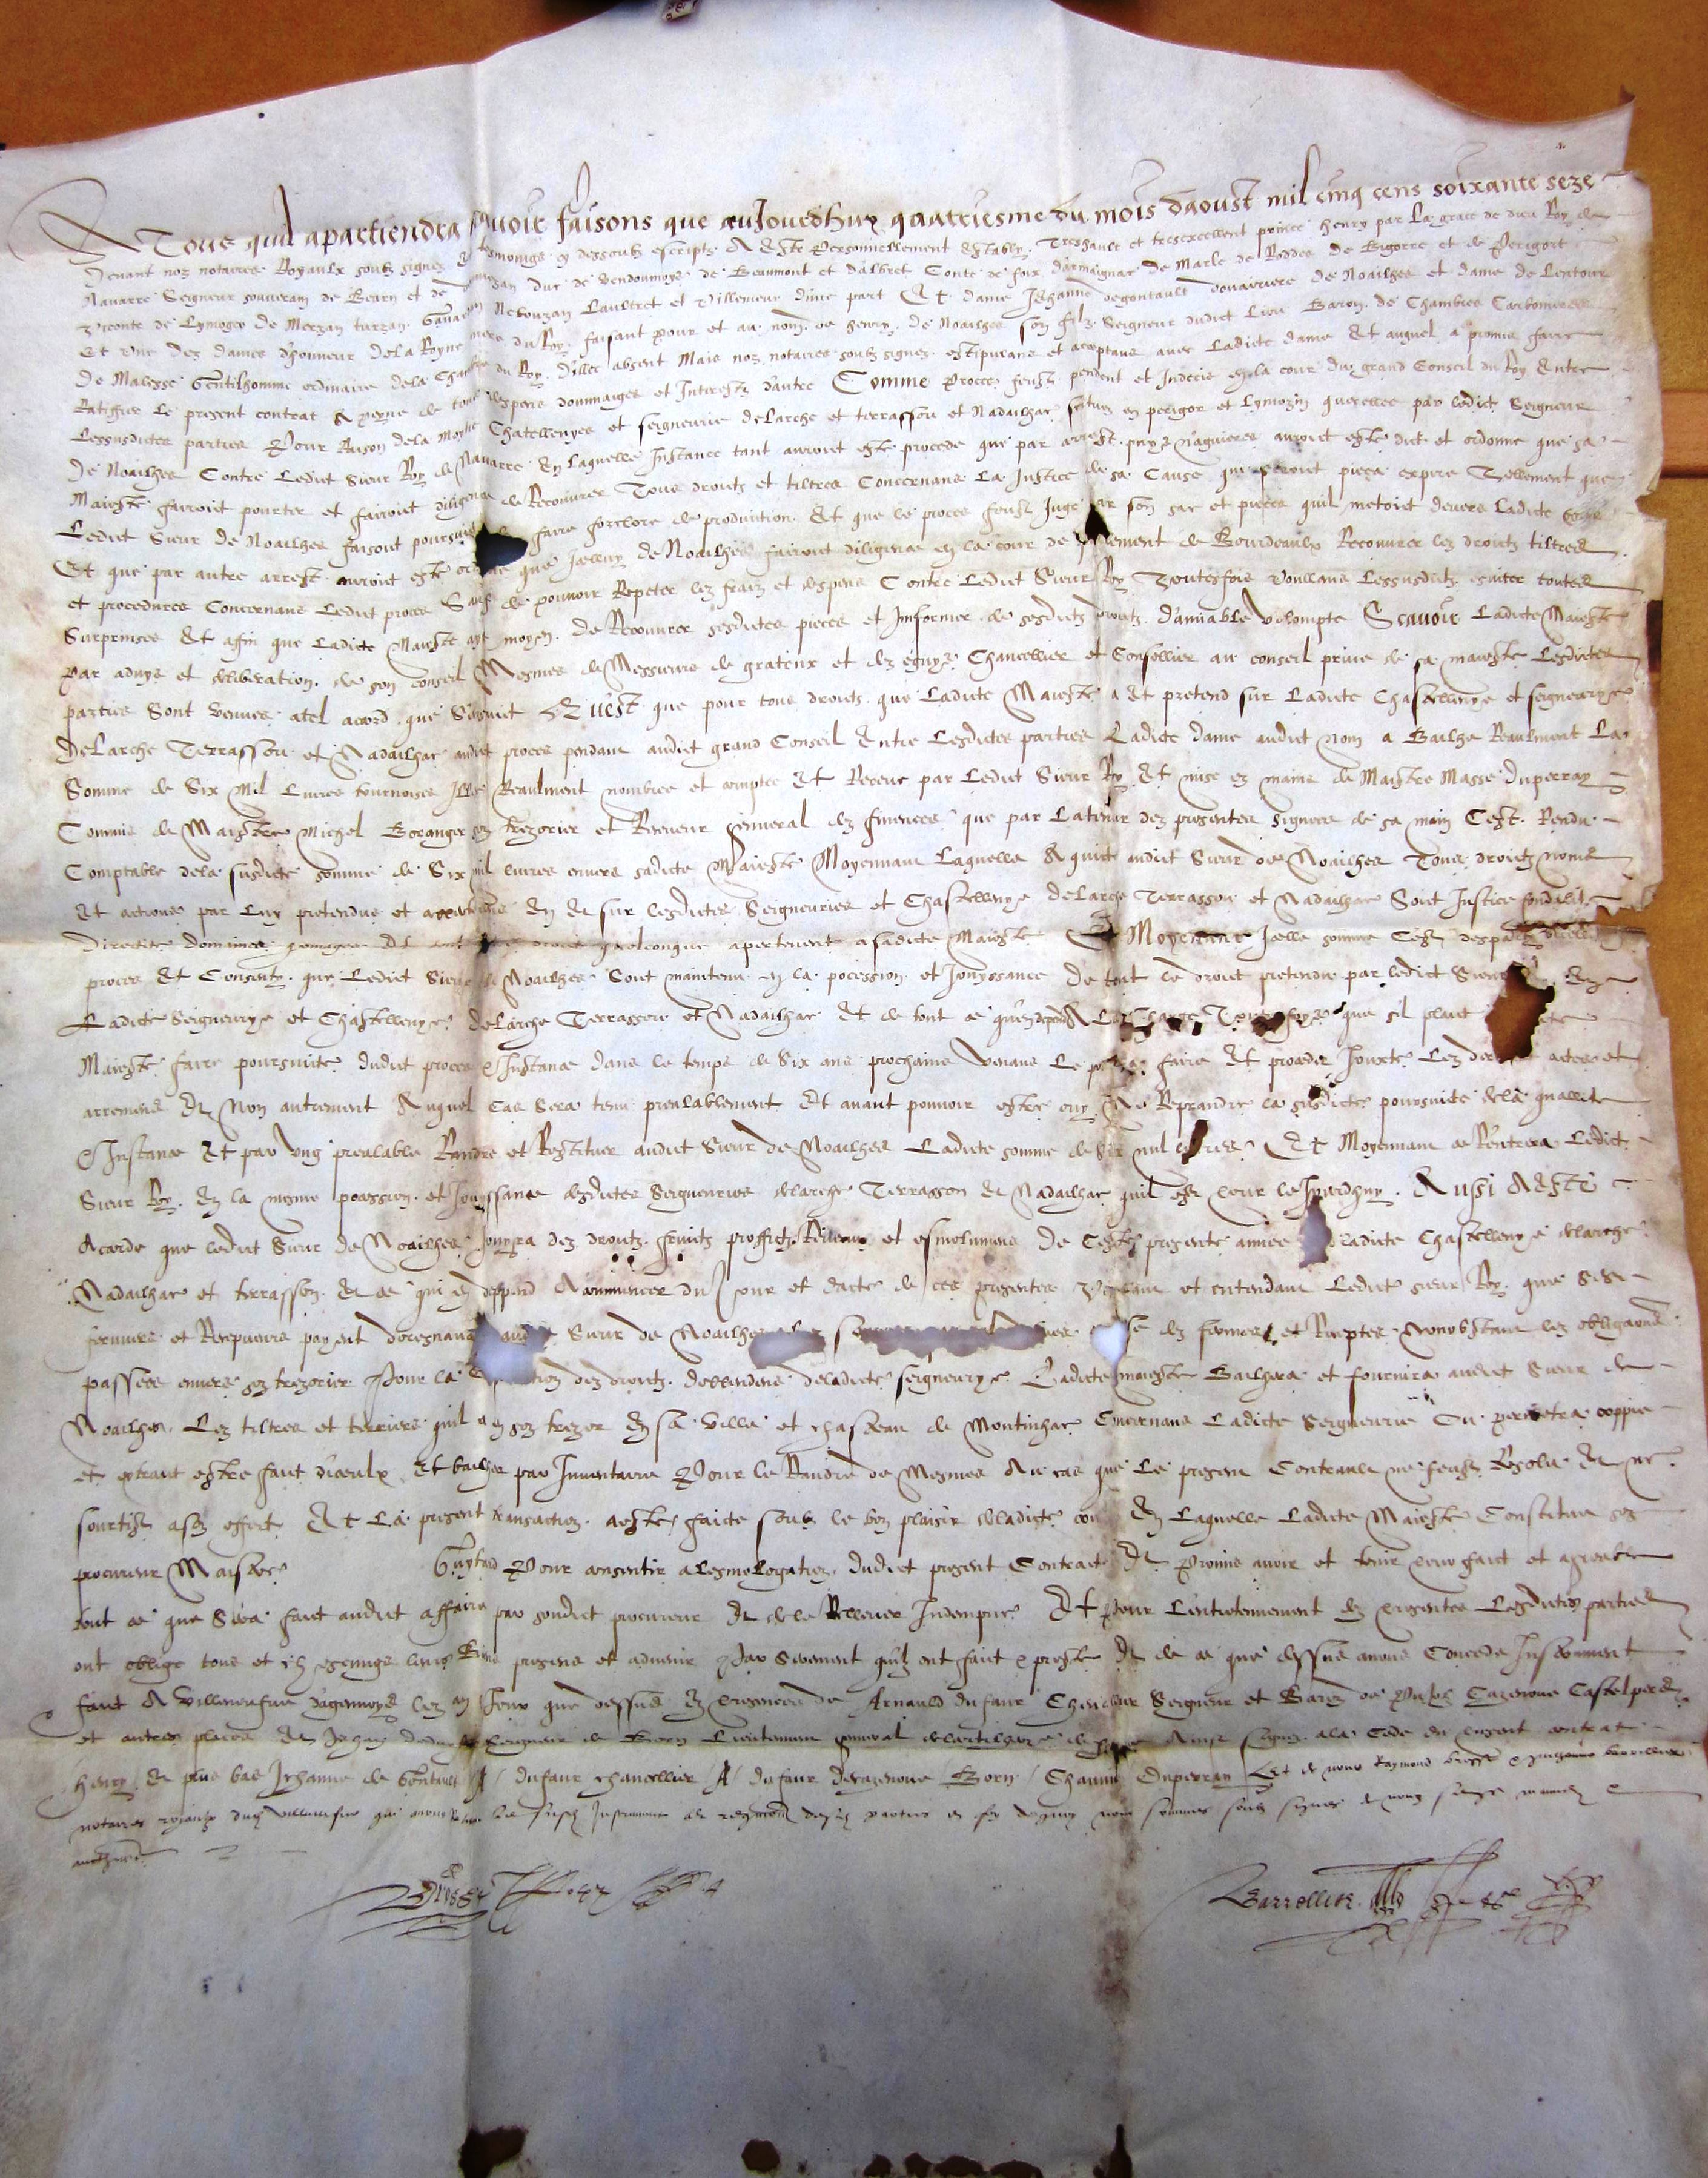 A Tous quil apartiendra scavoir faisons que aujourdhuy quatriesme du mois daoust mil cinq cens soixante seze
Devant noz notaires Royaulx soubz signez tesmoings cy dessoubz escriptz A este Personnellement estably Treshault et tresexcellent prince henry par La grace de dieu Roy de
Navarre Seigneur souverain de Bearn et de duc de Vendoumoys de Beaumont et dalbret Conte de foix darmaignac de Marle de Roddes de Bigorre et de Perigort
Viconte de Lymoges de Marzan turzan Gavardan Nebouzan Laultret et Villemeur dune part Et dame Jehanne degontault douairiere de Noailhes et dame de Lentour
Et Une des dames dhonneur dela Royne mere du Roy faisant pour et au nom de henry de Noailhes son filz Seigneur dudict Lieu Baron de Chambres Carbonieres
De Malesse Gentilhomme ordinaire dela Chambre du Roy dillec absent Mais noz notaires soubz signez estipulans et aceptans avec Ladicte dame Et auquel a promis faire
Ratiffier Le present contrat A peyne de tous despens dommaiges et Interestz dautre Comme Proces feust pendent et Indecis en la cour du grand Conseil du Roy Entre
Lessusdictes parties Pour Raison dela Moytie Chatellenyes et seigneurie deLarche et terrasson et Nadailhac situez en perigor et Lymozin querellee par ledict Seigneur
De Noailhes Contre Ledict Sieur Roy de Navarre En Laquelle Instance tant auroict este procede que par arrest puys naguieres auroict este dict et ordonne que sa
Maieste fairoict pourter et fairoict diligence de Recouvrer Tous droictz et tiltres Concernans La Justice de sa Cause qui seroict pieça expire Tellement que
Ledict Sieur de Noailhes faisoit poursuite faire forclore de production Et que le proces feust Juge par son sac et pieces quil metoict devers Ladicte Cour
Et que par autre arrest auroict este ordonne que Jcelluy de Noailhes fairoict diligence en la cour de parlement de Bourdeaulx Recouvrer les droictz tiltres
et procedures Concernans Ledict proces Sauf de pouvoir Repeter les fraiz et despens Contre Ledict Sieur Roy Toutesfois Voullans Lessusdictz eviter toutes
Surprinses Et afin que Ladicte Maieste aye moyen De Recouvrer sesdictes pieces et Jnformer de sesdictz droictz damiable Scavoir Ladicte Maieste
Par advys et deliberation de son conseil Mesmes de Messieurs de grateinx et Chancellier et Conseillier au conseil prive de sa maieste Lesdictes
parties Sont Venues atel acord que Sensuict Quest que pour tous droictz que Ladicte Maieste a Et pretend sur Ladicte Chastellenye et seigneurye
DeLarche Terrasson et Nadailhac audict proces pendant audict grand Conseil Entre Lesdictes parties Ladicte dame audict Nom a Bailhe Reaulment La
Somme de Six Mil Livres tournoises Reaulment nombree et comptee Et Receue par Ledict Sieur Roy Et mise es mains de Maistre Masse duperray
Commis de Maistre Michel Beranger son tresorier et Receveur general des finences que par Latenur des presentes signees de sa main Cest Rendu
Comptable dela susdicte somme de Six mil livres envers sadicte Maieste Moyennant Laquelle A quicte audict Sieur de Noailhes Tous droictz noms
Et actions par Luy pretendus En Et sur lesdictes Seigneuries et Chastellenye deLarche Terrasson et Nadailhac Soict Justice fondalite
Directite dommaine hommages Et tout autre droict quelconque apertenent a sadicte Maieste Et Moyennant Jcelle somme Cest
proces Et Consenty que Ledict Sieur de Noailhes Soict maintenu en la pocession et Jouyssance De tout le droict pretendu par ledict Sieur En
Ladicte Seigneurye et Chastellenye deLarche Terrasson et Nadailhac Et de tout ce quen depend A La Charge Toutesfoys que sil plaict
Maieste faire poursuite dudict proces et Instance dans le temps de Six ans prochains Venans Le faire Et proceder Jouxte Les actes et
arremens Et Non autrement Auquel Cas Sera tenu prealablement Et avant pouvoir estre ouy Ne Reprandre la susdicte poursuite dela quallite
et Instance Et par Ung prealable Randre et Restituer audict Sieur de Noailhes Ladicte somme de Six mil livres Et Moyennant ce Rentrera Ledict
Sieur Roy En la mesme pocession et Jouyssance desdictes Seigneuries deLarche Terrasson Et Nadailhac quil est Aussi A Este
Acorde que ledict Sieur de Noailhes Jouyra des droictz fruictz proffictz Revenus et esmolumens De Ceste presente annee de Ladicte Chastellenye deLarche
Nadailhac et terrasson Et ce qui en deppend A commencer du Jour et dacte de ces presentes Voullant et entendant Ledict sieur Roy que Ses
fermiers et Recepveurs payent doresnavant audict Sieur de Noailhes des fermes et Receptes Nonobstant les obligacions
passees envers son tresorier Pour la des droictz dela dicte seigneurye Ladicte maieste Bailhera et fournira audict Sieur de
Noailhes Les tiltres et terriers quil a en son trezor En sa Ville et chasteau de Montinhac Concernans Ladicte Seigneurie Ou permetra coppie
et extraict estre faict diceulx Et bailher par Inventaire Pour le Randre de Mesmes Au cas que Le present Contrault ne feust Resolu Et ne
sourtist a son effect Et La present transaction a este faicte soubz le bon plaisir deladicte cour En Laquelle Ladicte Maieste Constitue son
procureur Maistre Guytard Pour consentir a Lesmologation dudict present Contract Et Promis avoir et tenir pour faict et agreable
tout ce que Sera faict audict affaire par sondict procureur Et de le Rellever Indempne Et pour Lentretennement des presentes Lesdictes parties
ont oblige tous et chescungs leurs Biens presens et advenir Par Serement quilz ont faict et preste Et de ce que dessus avons Concede Instrument
faict A Villeneufve dagennoys les an et Jour que dessus Es presences de Arnauld du faur Chevallier Seigneur et Baron de Pujolz Cazeneuve Castelperdu
et autres places Et Jehan seigneur de Born Lieutenant general delartilherie de Ainsi signez a la Cede du present contrat
Henry Et plus bas Jehanne de Gontault / dufaur chancellier / dufaur decazeneuve Born / Chauny Duperray Et de nous Raymond Brosse et Barrellier
notaires royaulx dud Villeneufve qui avons Retenu Le susd Instrument de requisition desd parties en foy dequoy nous sommes soubz signes
Brosse
Barrellier